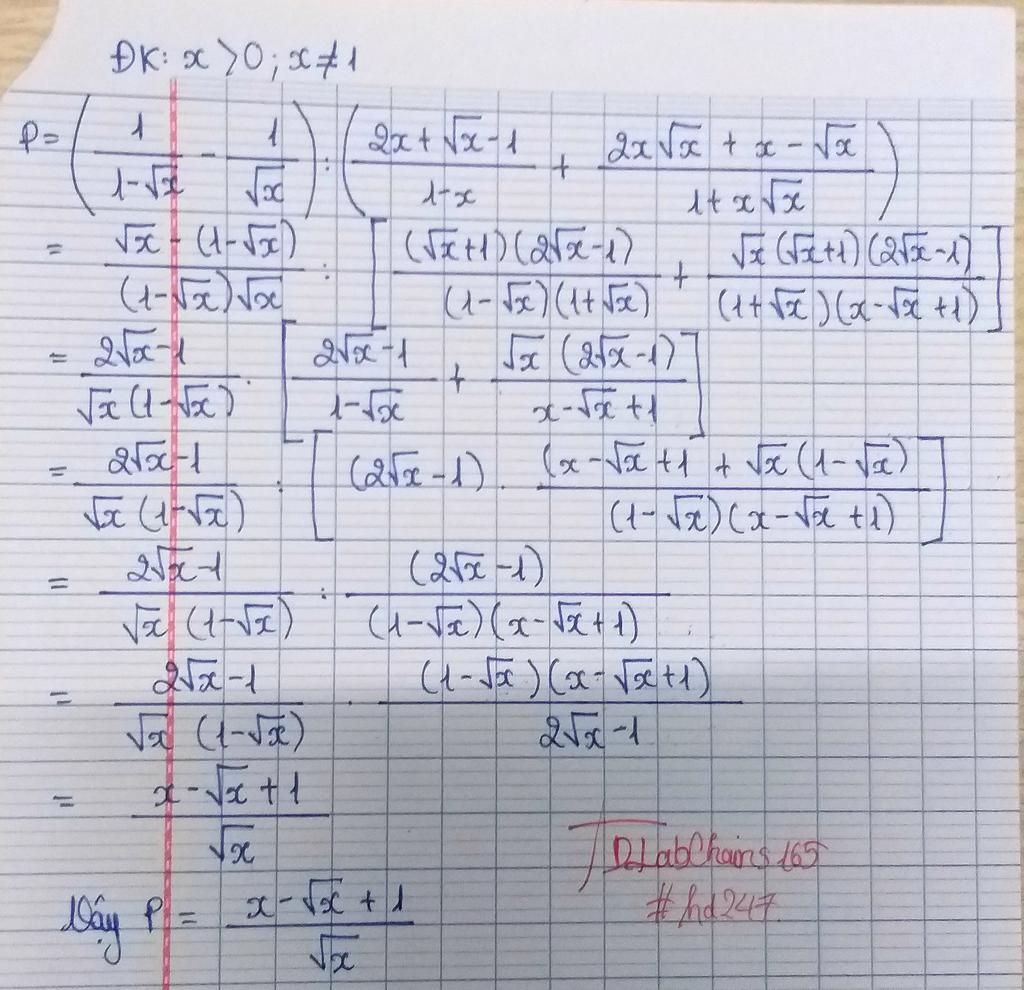 ĐK: x > 0; x ≠ 1
P = (1/(1-√x) - 1/√x) : ((2x + √x - 1)/(1-x) + (2x√x + x - √x)/(1 + x√x))
= (√x - (1-√x))/((1-√x)√x) : [((√x+1)(2√x-1))/((1-√x)(1+√x)) + (√x(√x+1)(2√x-1))/((1+√x)(x-√x+1))]
= (2√x-1)/(√x(1-√x)) : [(2√x-1)/(1-√x) + (√x(2√x-1))/(x-√x+1)]
= (2√x-1)/(√x(1-√x)) : [(2√x-1) . (x-√x+1 + √x(1-√x))/((1-√x)(x-√x+1))]
= (2√x-1)/(√x(1-√x)) : (2√x-1)/((1-√x)(x-√x+1))
= (2√x-1)/(√x(1-√x)) . ((1-√x)(x-√x+1))/(2√x-1)
= (x-√x+1)/√x
Vậy P = (x-√x+1)/√x
DLabChains165
#hd247